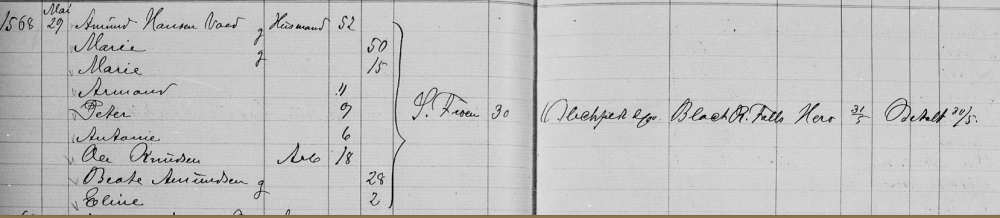 Mai
1568 29 Amund Hansen g Husmand 52
Marie g 50
Marie 15
Armand 11
Peter 9 S. Froen 30 Black R. Falls Hero 31/5 Betalt 30/5.
Antonie 6
Knudsen Arb 18
Beate Amundsen g 28
Eline 2